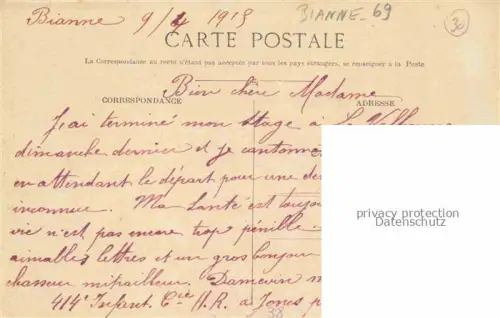 Bianne 9/4 1915 BIANNE-69 30
CARTE POSTALE
La Correspondance au recto n'étant pas acceptée par tous les pays étrangers, se renseigner à la Poste
Bien chère Madame
CORRESPONDANCE ADRESSE
J'ai terminé mon stage à La
dimanche dernier et je cantonne
en attendant le départ pour une de
inconnue. Ma santé est toujou
vie n'est pas encore trop pénible.
aimables lettres et un gros bonjour
chasseur mitrailleur. Damevin
414e Infant. Cie H.R. à Jons
38
privacy protection
Datenschutz